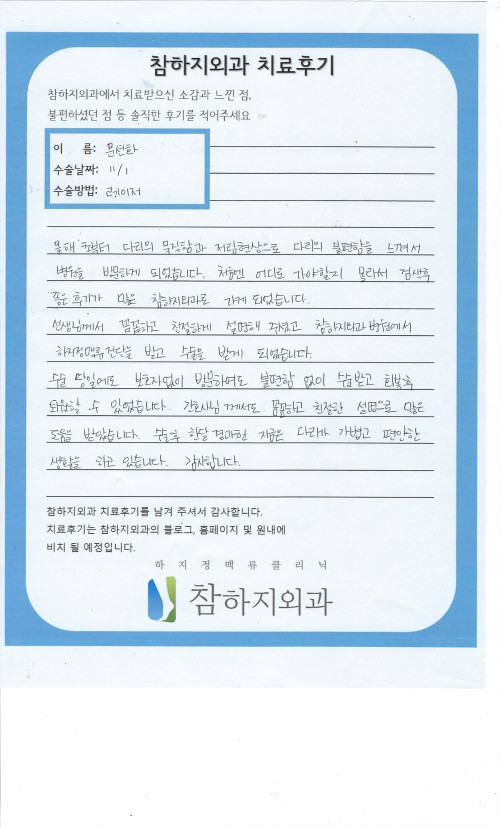 참하지외과 치료후기
참하지외과에서 치료받으신 소감과 느낀 점,
불편하셨던 점 등 솔직한 후기를 적어주세요
이 름: 문선화
수술날짜: 11/1
수술방법: 레이저
올해 초부터 다리의 묵직함과 저림현상으로 다리의 불편함을 느껴서
병원을 방문하게 되었습니다. 처음엔 어디로 가야할지 몰라서 검색후
좋은 후기가 많은 참하지외과로 가게 되었습니다.
선생님께서 꼼꼼하고 친절하게 설명해 주셨고 참하지외과 병원에서
하지정맥류 진단을 받고 수술을 받게 되었습니다.
수술 당일에도 보호자없이 방문하여도 불편함 없이 수술받고 회복후
퇴원할 수 있었습니다. 간호사님 께서도 꼼꼼하고 친절한 설명으로 많은
도움을 받았습니다. 수술후 한달 경과한 지금은 다리가 가볍고 편안한
생활을 하고 있습니다. 감사합니다.
참하지외과 치료후기를 남겨 주셔서 감사합니다.
치료후기는 참하지외과의 블로그, 홈페이지 및 원내에
비치 될 예정입니다.
하지정맥류클리닉
참하지외과